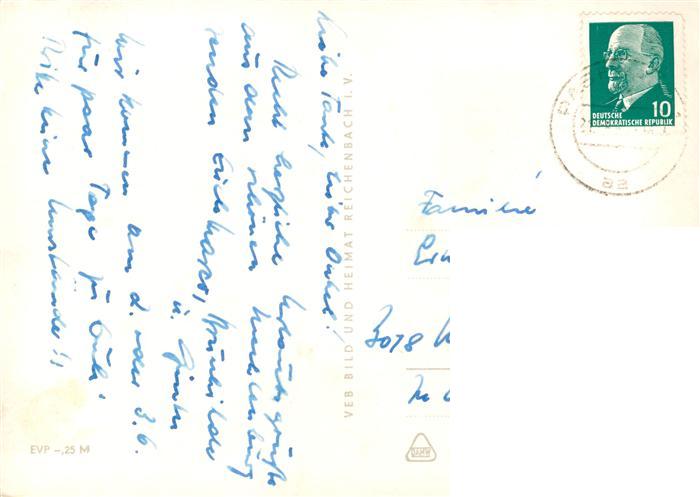 Liebe Tante, lieber Onkel!
Recht herzliche Urlaubsgrüße
aus dem schönen Mecklenburg
senden
u. Günter
Wir kommen am 2. oder 3.6.
für paar Tage zu Euch.
Bitte keine Umstände!!
VEB BILD UND HEIMAT REICHENBACH I. V.
10
DEUTSCHE
DEMOKRATISCHE REPUBLIK
Familie
3018
EVP –,25 M